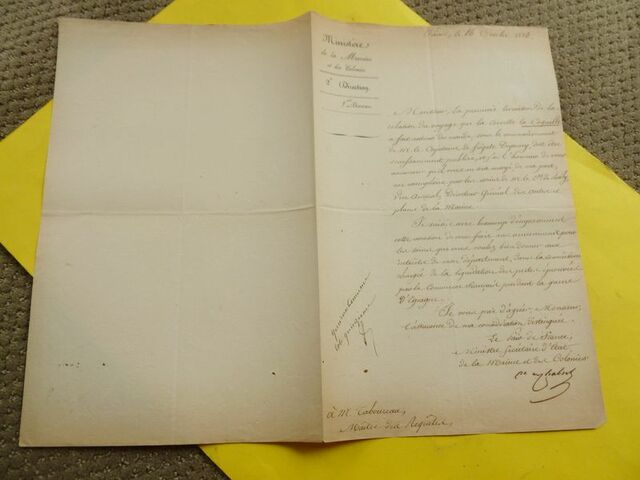 Ministère
de la Marine
et des Colonies
2e Direction
1er Bureau
Paris, le 16 Octobre
Monsieur, la première livraison de la
relation du voyage que la corvette la Coquille
a fait autour du monde, sous le commandement
de M. le Capitaine de frégate Duperrey doit être
incessamment publiée, et j'ai l'honneur de vous
annoncer qu'il vous en sera envoyé de ma part,
un exemplaire, par les soins de M. le Ch.er de
Directeur Général des Cartes et
plans de la Marine
Je saisis avec beaucoup d'empressement
cette occasion de vous faire mes remerciemens pour
les soins que vous voulez bien donner aux
intérêts de mon département, dans la commission
chargée de la liquidation des pertes éprouvées
par le Commerce français pendant la guerre
d'Espagne.
Je vous prie d'agréer, Monsieur,
l'assurance de ma considération distinguée.
Le Pair de France,
Ministre Secrétaire d'Etat
de la Marine et des Colonies
Cte de Chabrol
à M. Taboureau,
Maître des Requêtes